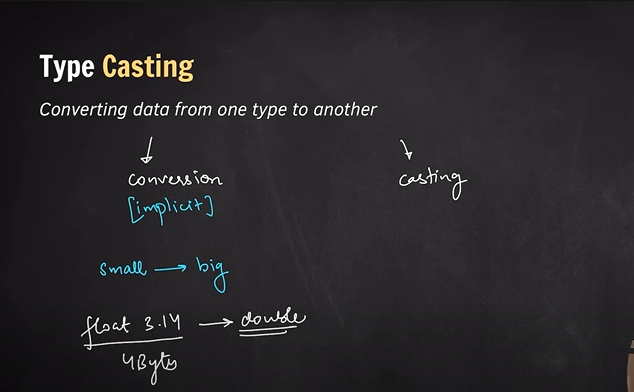 Type Casting
Converting data from one type to another
conversion
casting
[implicit]
small → big
float 3.14 → double
4Byts